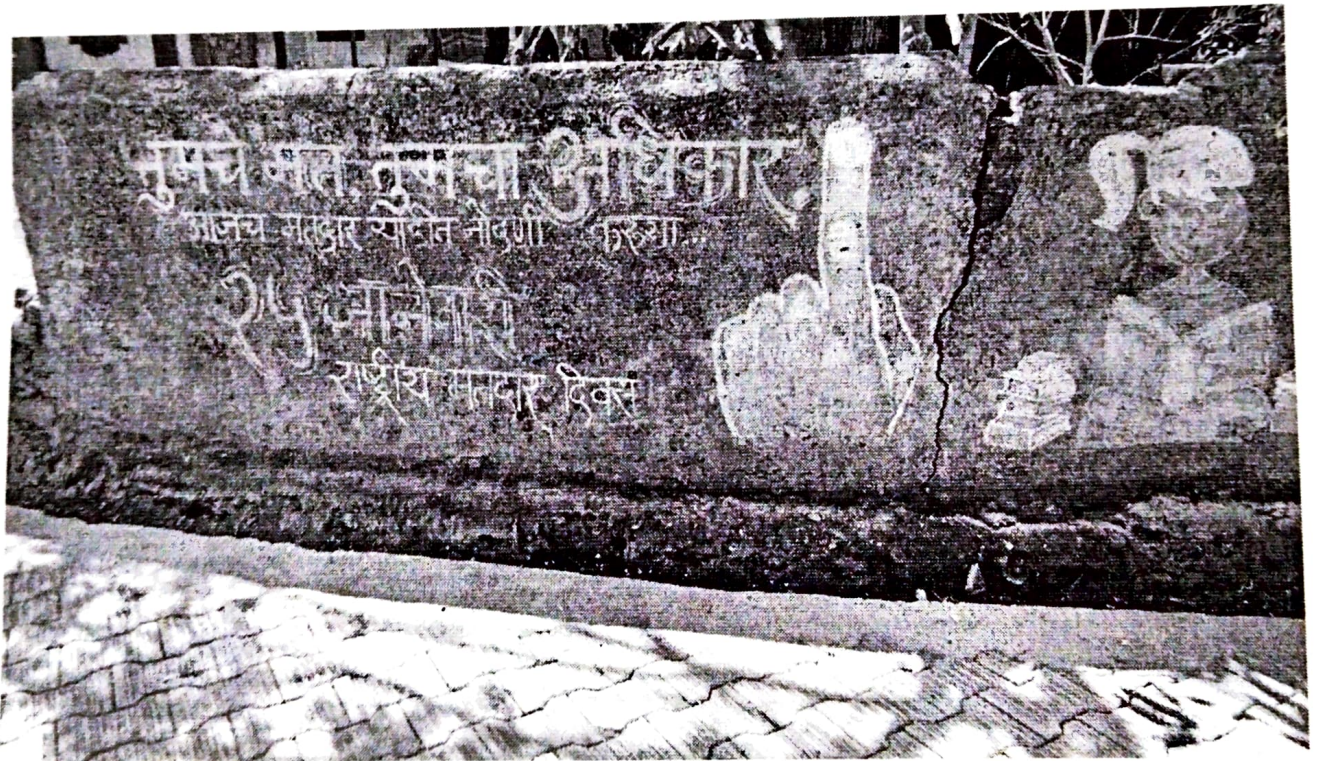 तुमचे मत, तुमचा अधिकार.
आजच मतदार यादीत नोंदणी करूया...
२५ जानेवारी
राष्ट्रीय मतदार दिवस